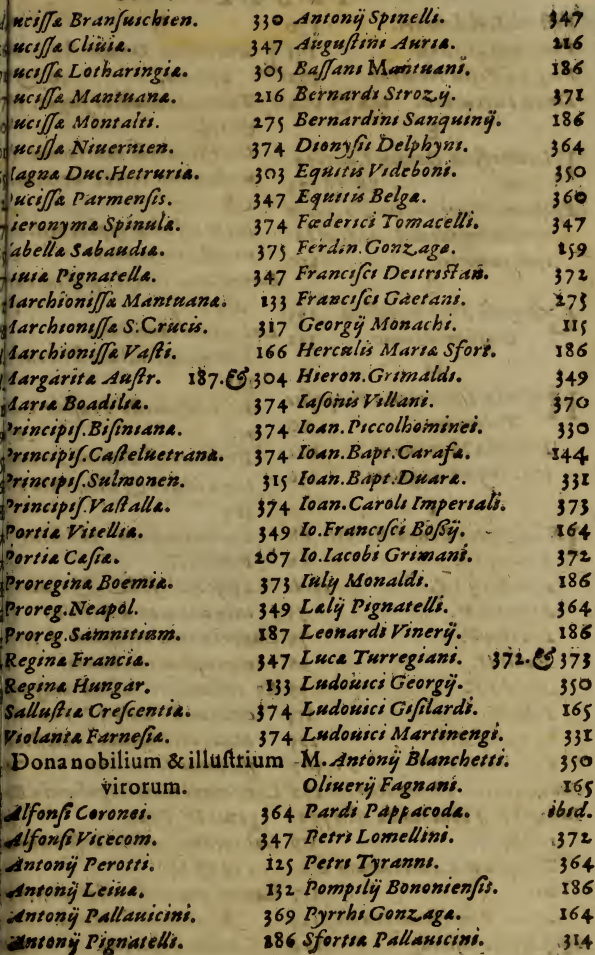 uciſſæ Branſuichien. 330
uciſſæ Cliuiæ. 347
uciſſæ Lotharingiæ. 305
uciſſæ Mantuanæ. 216
uciſſæ Montalti. 275
uciſſæ Niuernien. 374
agnæ Duc.Hetruriæ. 303
uciſſæ Parmenſis. 347
ieronymæ Spinulæ. 374
abellæ Sabaudiæ. 375
Pignatellæ. 347
archioniſſæ Mantuanæ. 133
archioniſſæ S.Crucis. 317
archioniſſæ Vaſti. 166
argaritæ Auſtr. 187.& 304
ariæ Boadiliæ. 374
rincipiſ.Biſinianæ. 374
rincipiſ.Caſteluetranæ. 374
rincipiſ.Sulmonen. 315
rincipiſ.Vaſtallæ. 374
Portiæ Vitelliæ. 349
Portiæ Cæſiæ. 267
Proreginæ Boemiæ. 373
Proreg.Neapol. 349
Proreg.Samnitium. 187
Reginæ Franciæ. 347
Reginæ Hungar. 133
Salluſtiæ Creſcentiæ. 374
Violantæ Farneſiæ. 374
Dona nobilium & illuſtrium
virorum.
Alfonſi Coronei. 364
Alfonſi Vicecom. 347
Antonij Perotti. 125
Antonij Leiuæ. 132
Antonij Pallauicini. 369
Antonij Pignatelli. 186
Antonij Spinelli. 347
Auguſtini Auriæ. 216
Baſſani Mantuani. 186
Bernardi Stroz.ij. 371
Bernardini Sanquinij. 186
Dionyſii Delphyni. 364
Equitis Videboni. 350
Equitis Belgæ. 360
Fœderici Tomacelli. 347
Ferdin.Gonz.agæ. 159
Franciſci Deſtriſtan. 372
Franciſci Gaetani. 275
Georgij Monachi. 115
Herculis Mariæ Sfort. 186
Hieron.Grimaldi. 349
Iaſonis Villani. 370
Ioan.Piccolhominei. 330
Ioan.Bapt.Carafæ. 144
Ioan.Bapt.Duaræ. 331
Ioan.Caroli Imperiali. 373
Io.Franciſci Boſſij. 164
Io.Iacobi Grimani. 372
Iulij Monaldi. 186
Lælij Pignatelli. 364
Leonardi Vinerij. 186
Lucæ Turregiani. 372.& 373
Ludouici Georgij. 350
Ludouici Giſilardi. 165
Ludouici Martinengi. 331
M.Antonij Blanchetti. 350
Oliuerij Fagnani. 165
Pardi Pappacodæ. ibid.
Petri Lomellini. 372
Petri Tyranni. 364
Pompilij Bononienſis. 186
Pyrrhi Gonz.agæ. 164
Sfortiæ Pallauicini. 314